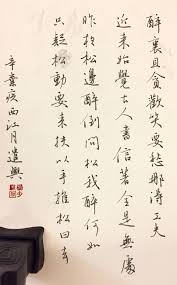 醉裏且貪歡笑要愁那得工夫
近來始覺古人書信著全是無處
昨夜松邊醉倒問松我醉何如
只疑松動要來扶以手推松曰去
辛棄疾西江月遣興